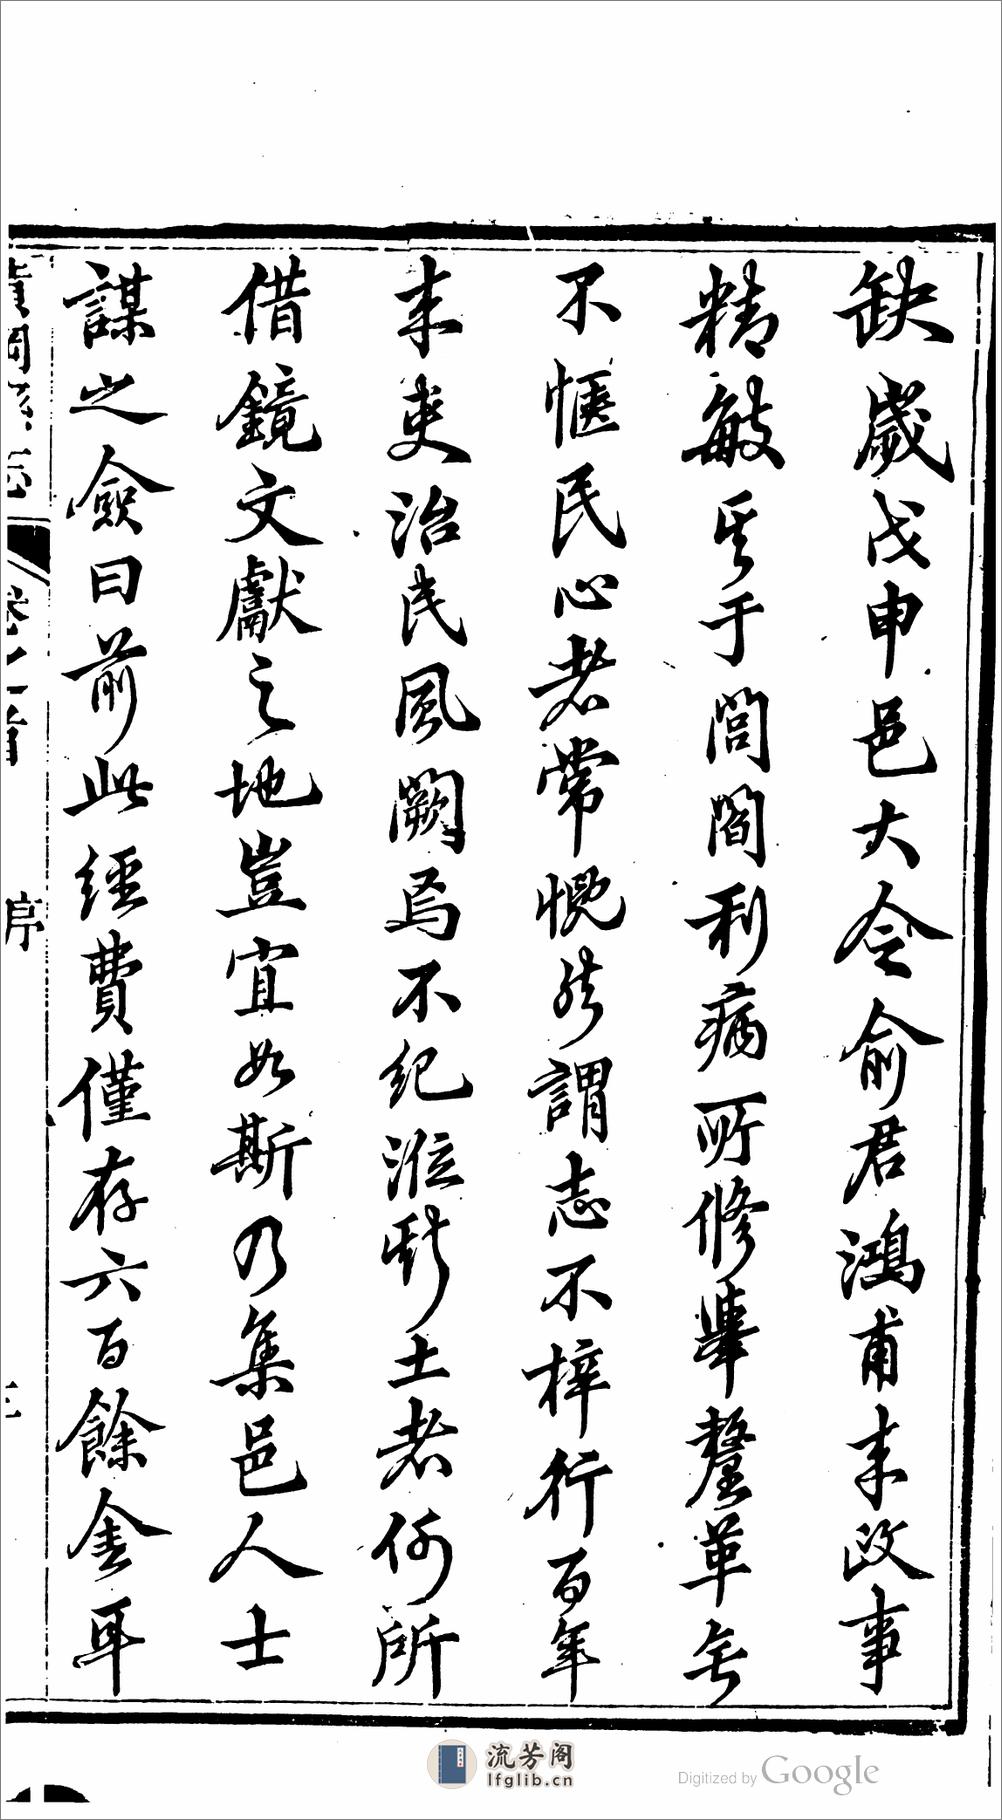 缺歲戊申邑大令俞君鴻甫来政事
精敏其于閭閻利病所修舉釐革無
不愜民心者常慨然謂志不梓行百年
来吏治民風闕焉不紀涖斯土者何所
借鏡文獻之地豈宜如斯乃集邑人士
謀之僉曰前此經費僅存六百餘金耳
黄岡縣志
卷之首
序
流芳阁
lfglib.cn
Digitized by Google